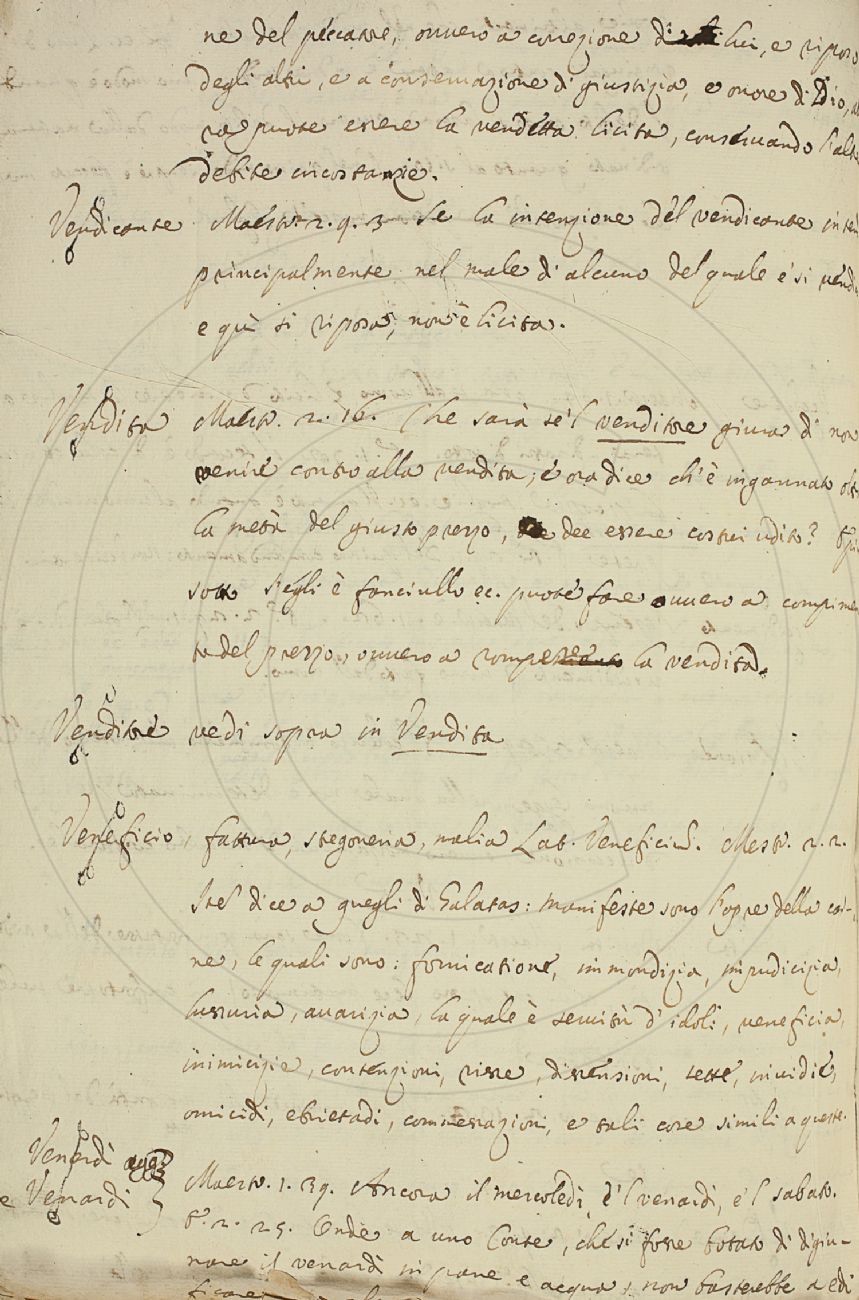 ne del peccare, ovvero a correzione di lui, e riposo
degli altri, e a conservazione di giustizia, e onore di Dio,
ra puote essere la vendetta licita, conservando l'altre
debite circostanzie.
Vendicante Maestr. 2. 9. 3 Se la intenzione del vendicante
principalmente nel male d'alcuno del quale e' si vendi
e qui si riposa, non è licita.
Vendita Maestr. 2. 16. Che sarà se'l venditore giura di non
venire contro alla vendita, e ora dice ch'è ingannato olt
la metà del giusto prezzo, dee essere costui udito?
sotto s'egli è fanciullo ec. puote fare ovvero a compime
to del prezzo, ovvero a rompere la vendita.
Venditore vedi sopra in Vendita
Veneficio, fattura, stregoneria, malia Lat. Veneficiū. Mestr. 2. 2.
dice a quegli di Galatas: manifeste sono l'opre della car-
ne, le quali sono: fornicatione, immondizia, impudicizia,
lussuria, avarizia, la quale è servitù d'idoli, veneficia,
inimicizie, contenzioni, risse, dissensioni, sette, invidie,
omicidi, ebrietadi, commessazioni, e tali cose simili a queste.
Venerdì
e Venardi } Maestr. 1. 39. Ancora il mercoledì, e'l venardi, e'l sabato.
2. 25. Onde a uno Conte, che si fosse botato di digiu-
nare il venardi in pane e acqua, non basterebbe a edi
ficare